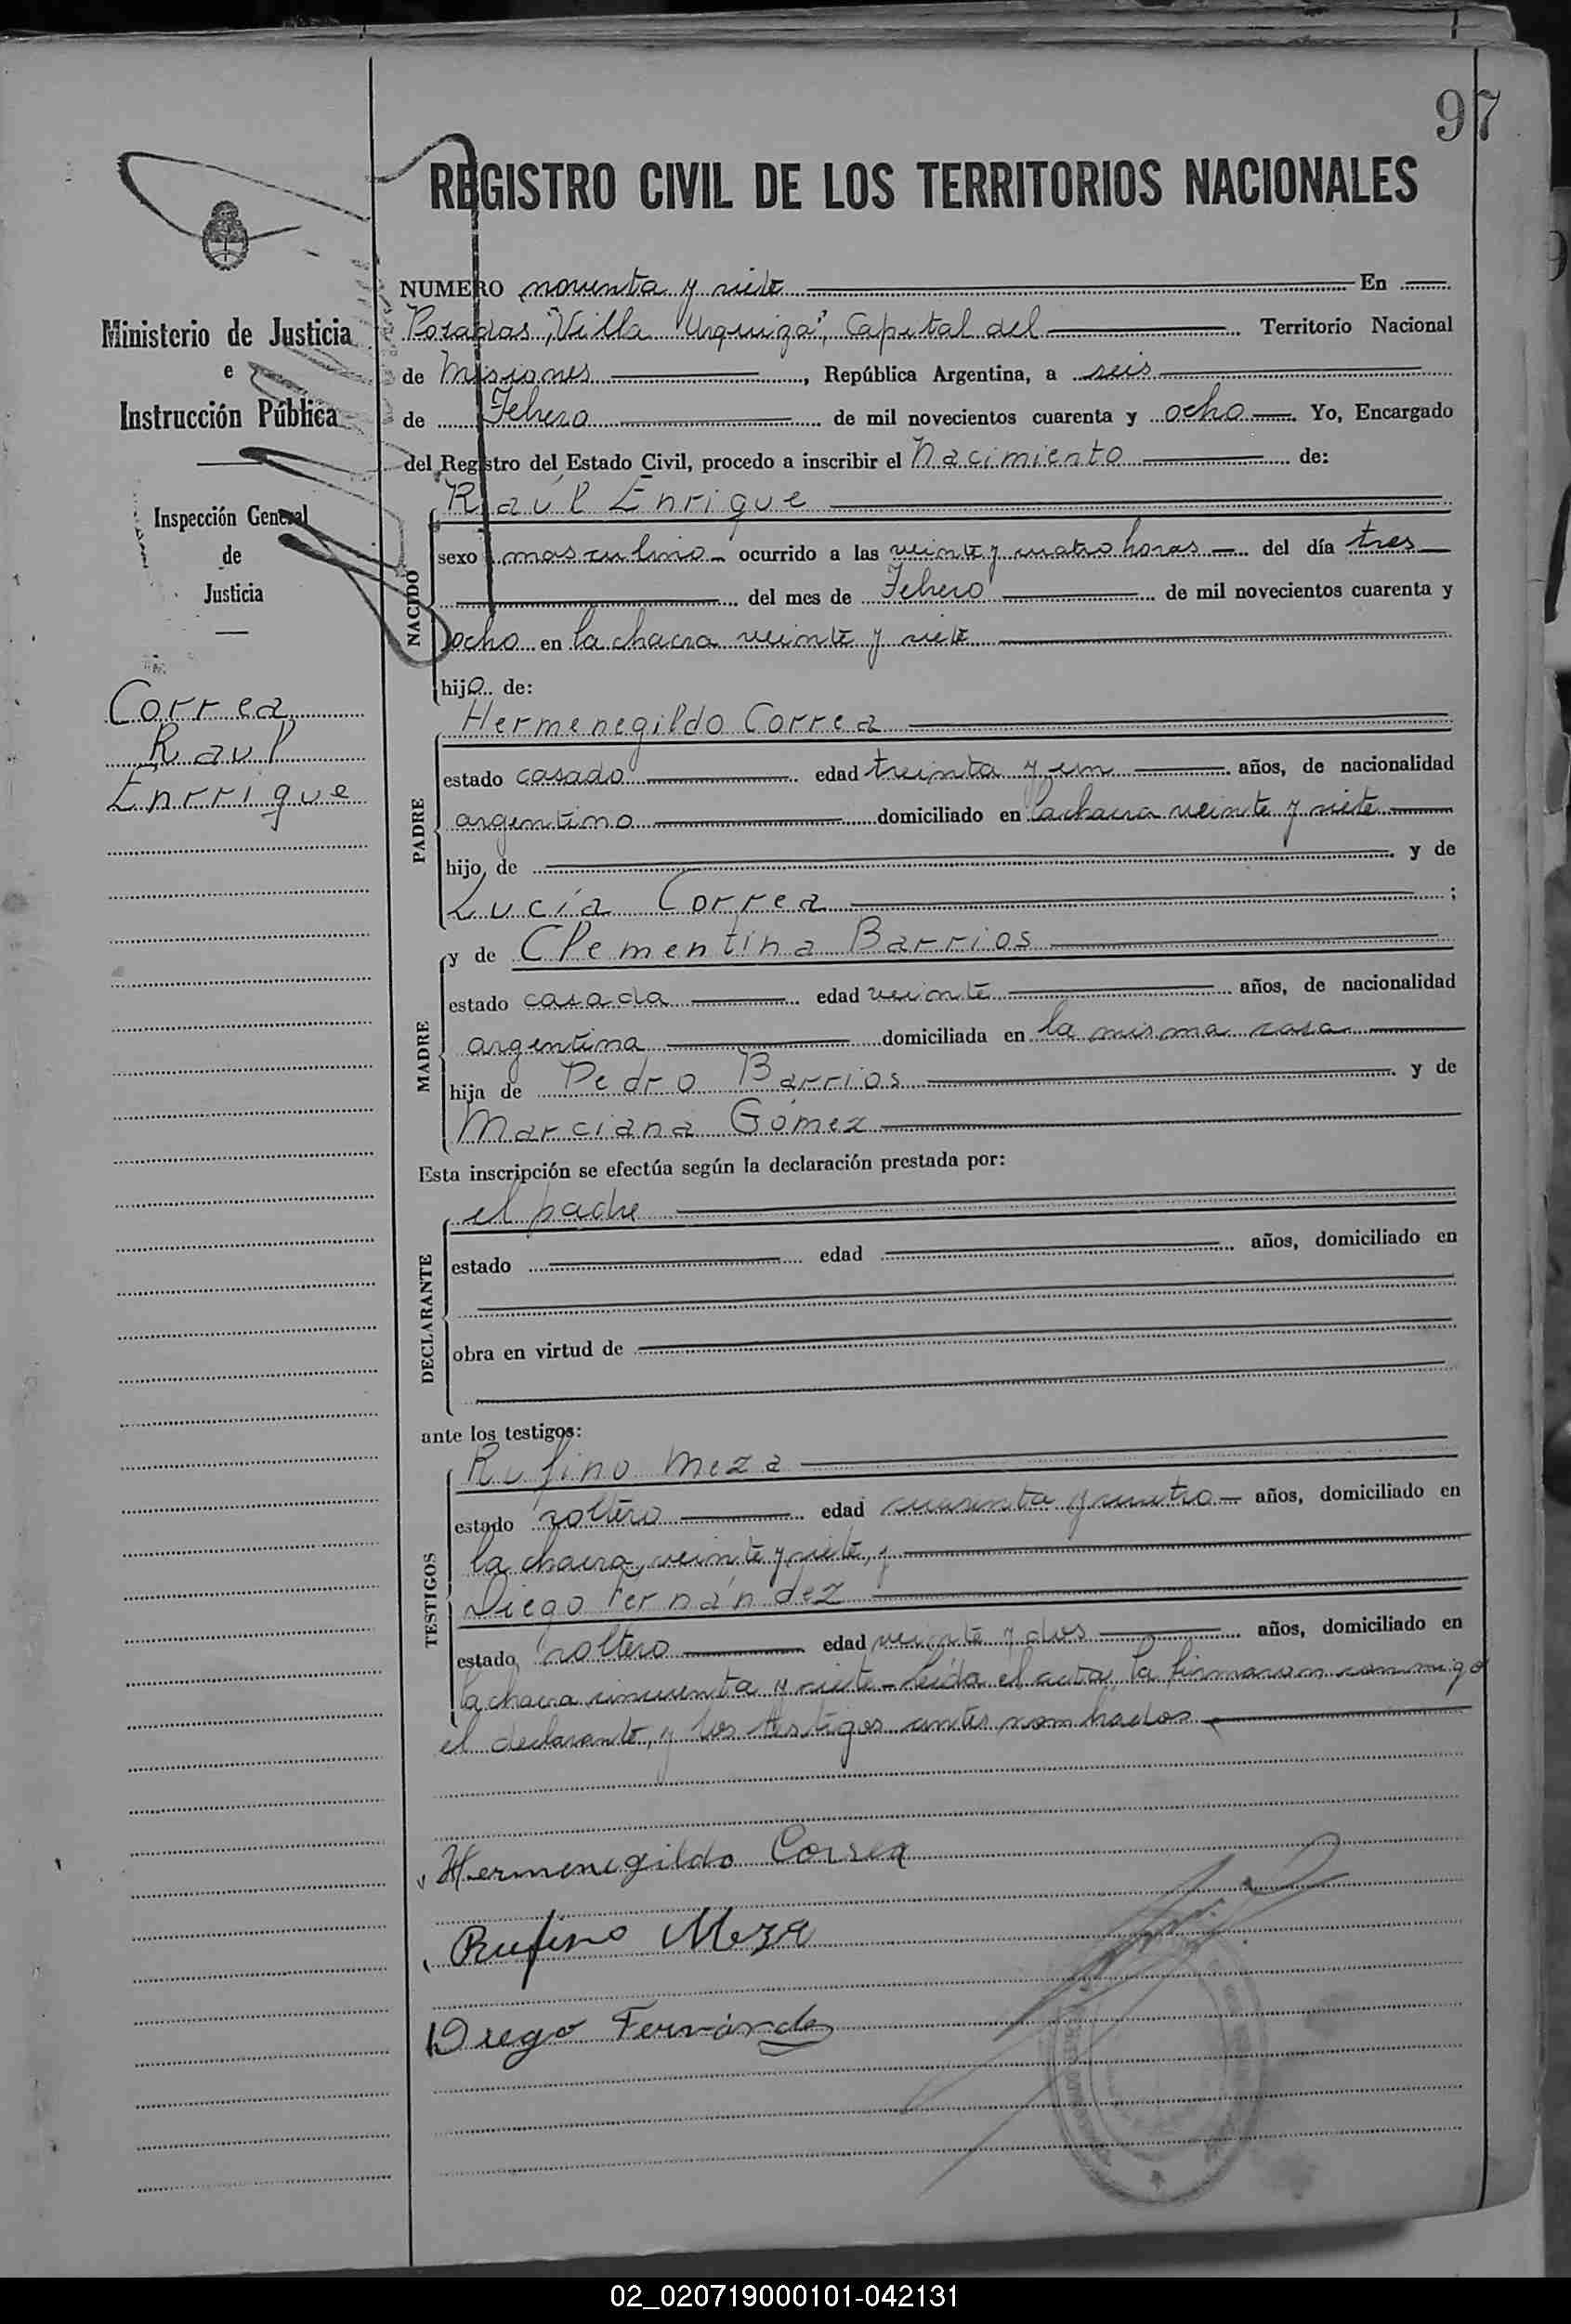 97
REGISTRO CIVIL DE LOS TERRITORIOS NACIONALES
Ministerio de Justicia
e
Instrucción Pública
Inspección General
de
Justicia
Correa
Raul
Enrrique
NUMERO noventa y siete En
Posadas, "Villa Urquiza", Capital del Territorio Nacional
de Misiones, República Argentina, a seis
de Febrero de mil novecientos cuarenta y ocho. Yo, Encargado
del Registro del Estado Civil, procedo a inscribir el Nacimiento de:
NACIDO
Raúl Enrique
sexo masculino ocurrido a las veinte y cuatro horas del día tres
del mes de Febrero de mil novecientos cuarenta y
ocho en la chacra veinte y siete
hijo de:
PADRE
Hermenegildo Correa
estado casado edad treinta y un años, de nacionalidad
argentino domiciliado en la chacra veinte y siete
hijo de y de
Lucía Correa ;
MADRE
y de Clementina Barrios
estado casada edad veinte años, de nacionalidad
argentina domiciliada en la misma casa
hija de Pedro Barrios y de
Marciana Gómez
Esta inscripción se efectúa según la declaración prestada por:
DECLARANTE
el padre
estado edad años, domiciliado en
obra en virtud de
ante los testigos:
TESTIGOS
Rufino Meza
estado soltero edad cuarenta y cuatro años, domiciliado en
la chacra veinte y siete, y
Diego Fernández
estado soltero edad veinte y dos años, domiciliado en
la chacra cincuenta y siete - Leída el acta la firmaron conmigo
el declarante, y los testigos antes nombrados.
Hermenegildo Correa
Rufino Meza
Diego Fernández
02_020719000101-042131